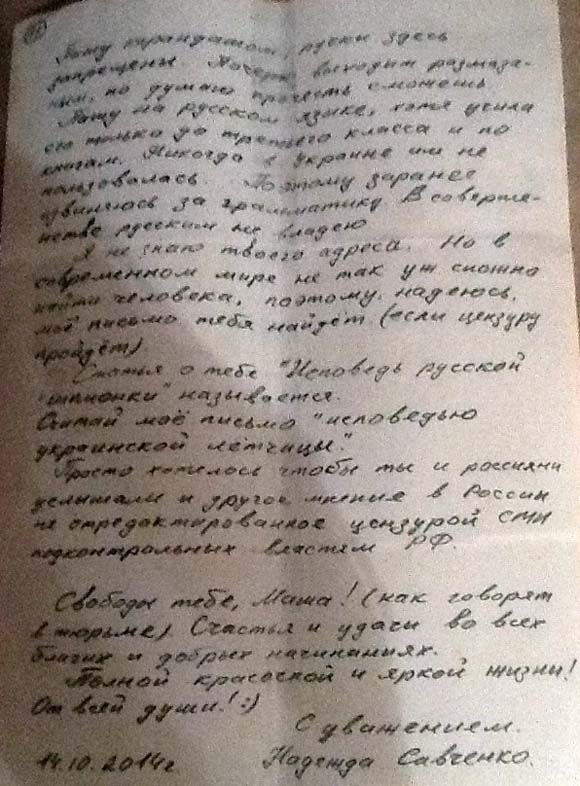 Пишу карандашом, ручки здесь
запрещены. Почерк выходит размаза-
ным, но думаю прочесть сможешь
Пишу на русском языке, хотя учила
ею только до третьего класса и по
книгам. Никогда в Украине им не
пользовалась. Поэтому заранее
извиняюсь за грамматику. В соверше-
нстве русским не владею
Я не знаю твоего адреса. Но в
современном мире не так уж сложно
найти человека, поэтому, надеюсь,
моё письмо тебя найдёт (если цензуру
пройдёт).
Статья о тебе "Исповедь русской
шпионки" называется.
Считай моё письмо "исповедью
украинской лётчицы."
Просто хотелось чтобы ты и россияни
услышали и другое мнение в России
не отредактированное цензурой СМИ
подконтрольных властям РФ.
Свободы тебе, Маша! (как говорят
в тюрьме). Счастья и удачи во всех
благих и добрых начинаниях.
Полной красоской и яркой жизни!
От всей души! :)
С уважением.
14.10.2014г Надежда Савченко.